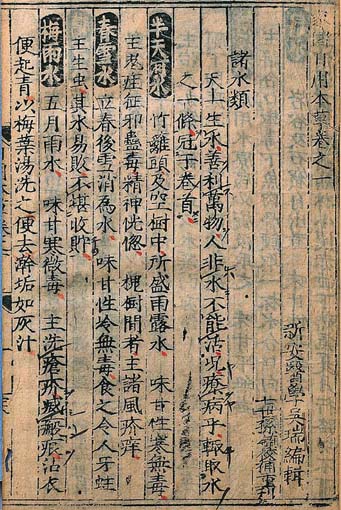 家傳日用本草卷之一
新安醫學吳瑞編輯
七世孫鎮校補重刊
諸水類
天一生水善利萬物人非水不能活况療病乎輒取水
之一條冠于卷首
半天河水 竹籬頭及空樹中所盛雨露水 味甘性寒無毒
主鬼疰狂邪蠱毒精神恍惚 槐樹間者主諸風疥痒
春雪水 立春後雪消為水 味甘性冷無毒食之令人牙蛀
主生虫其水易敗不堪收貯
梅雨水 五月雨水 味甘寒微毒 主洗瘡疥滅瘢痕沾衣
便起青以梅葉湯洗之便去澣垢如灰汁